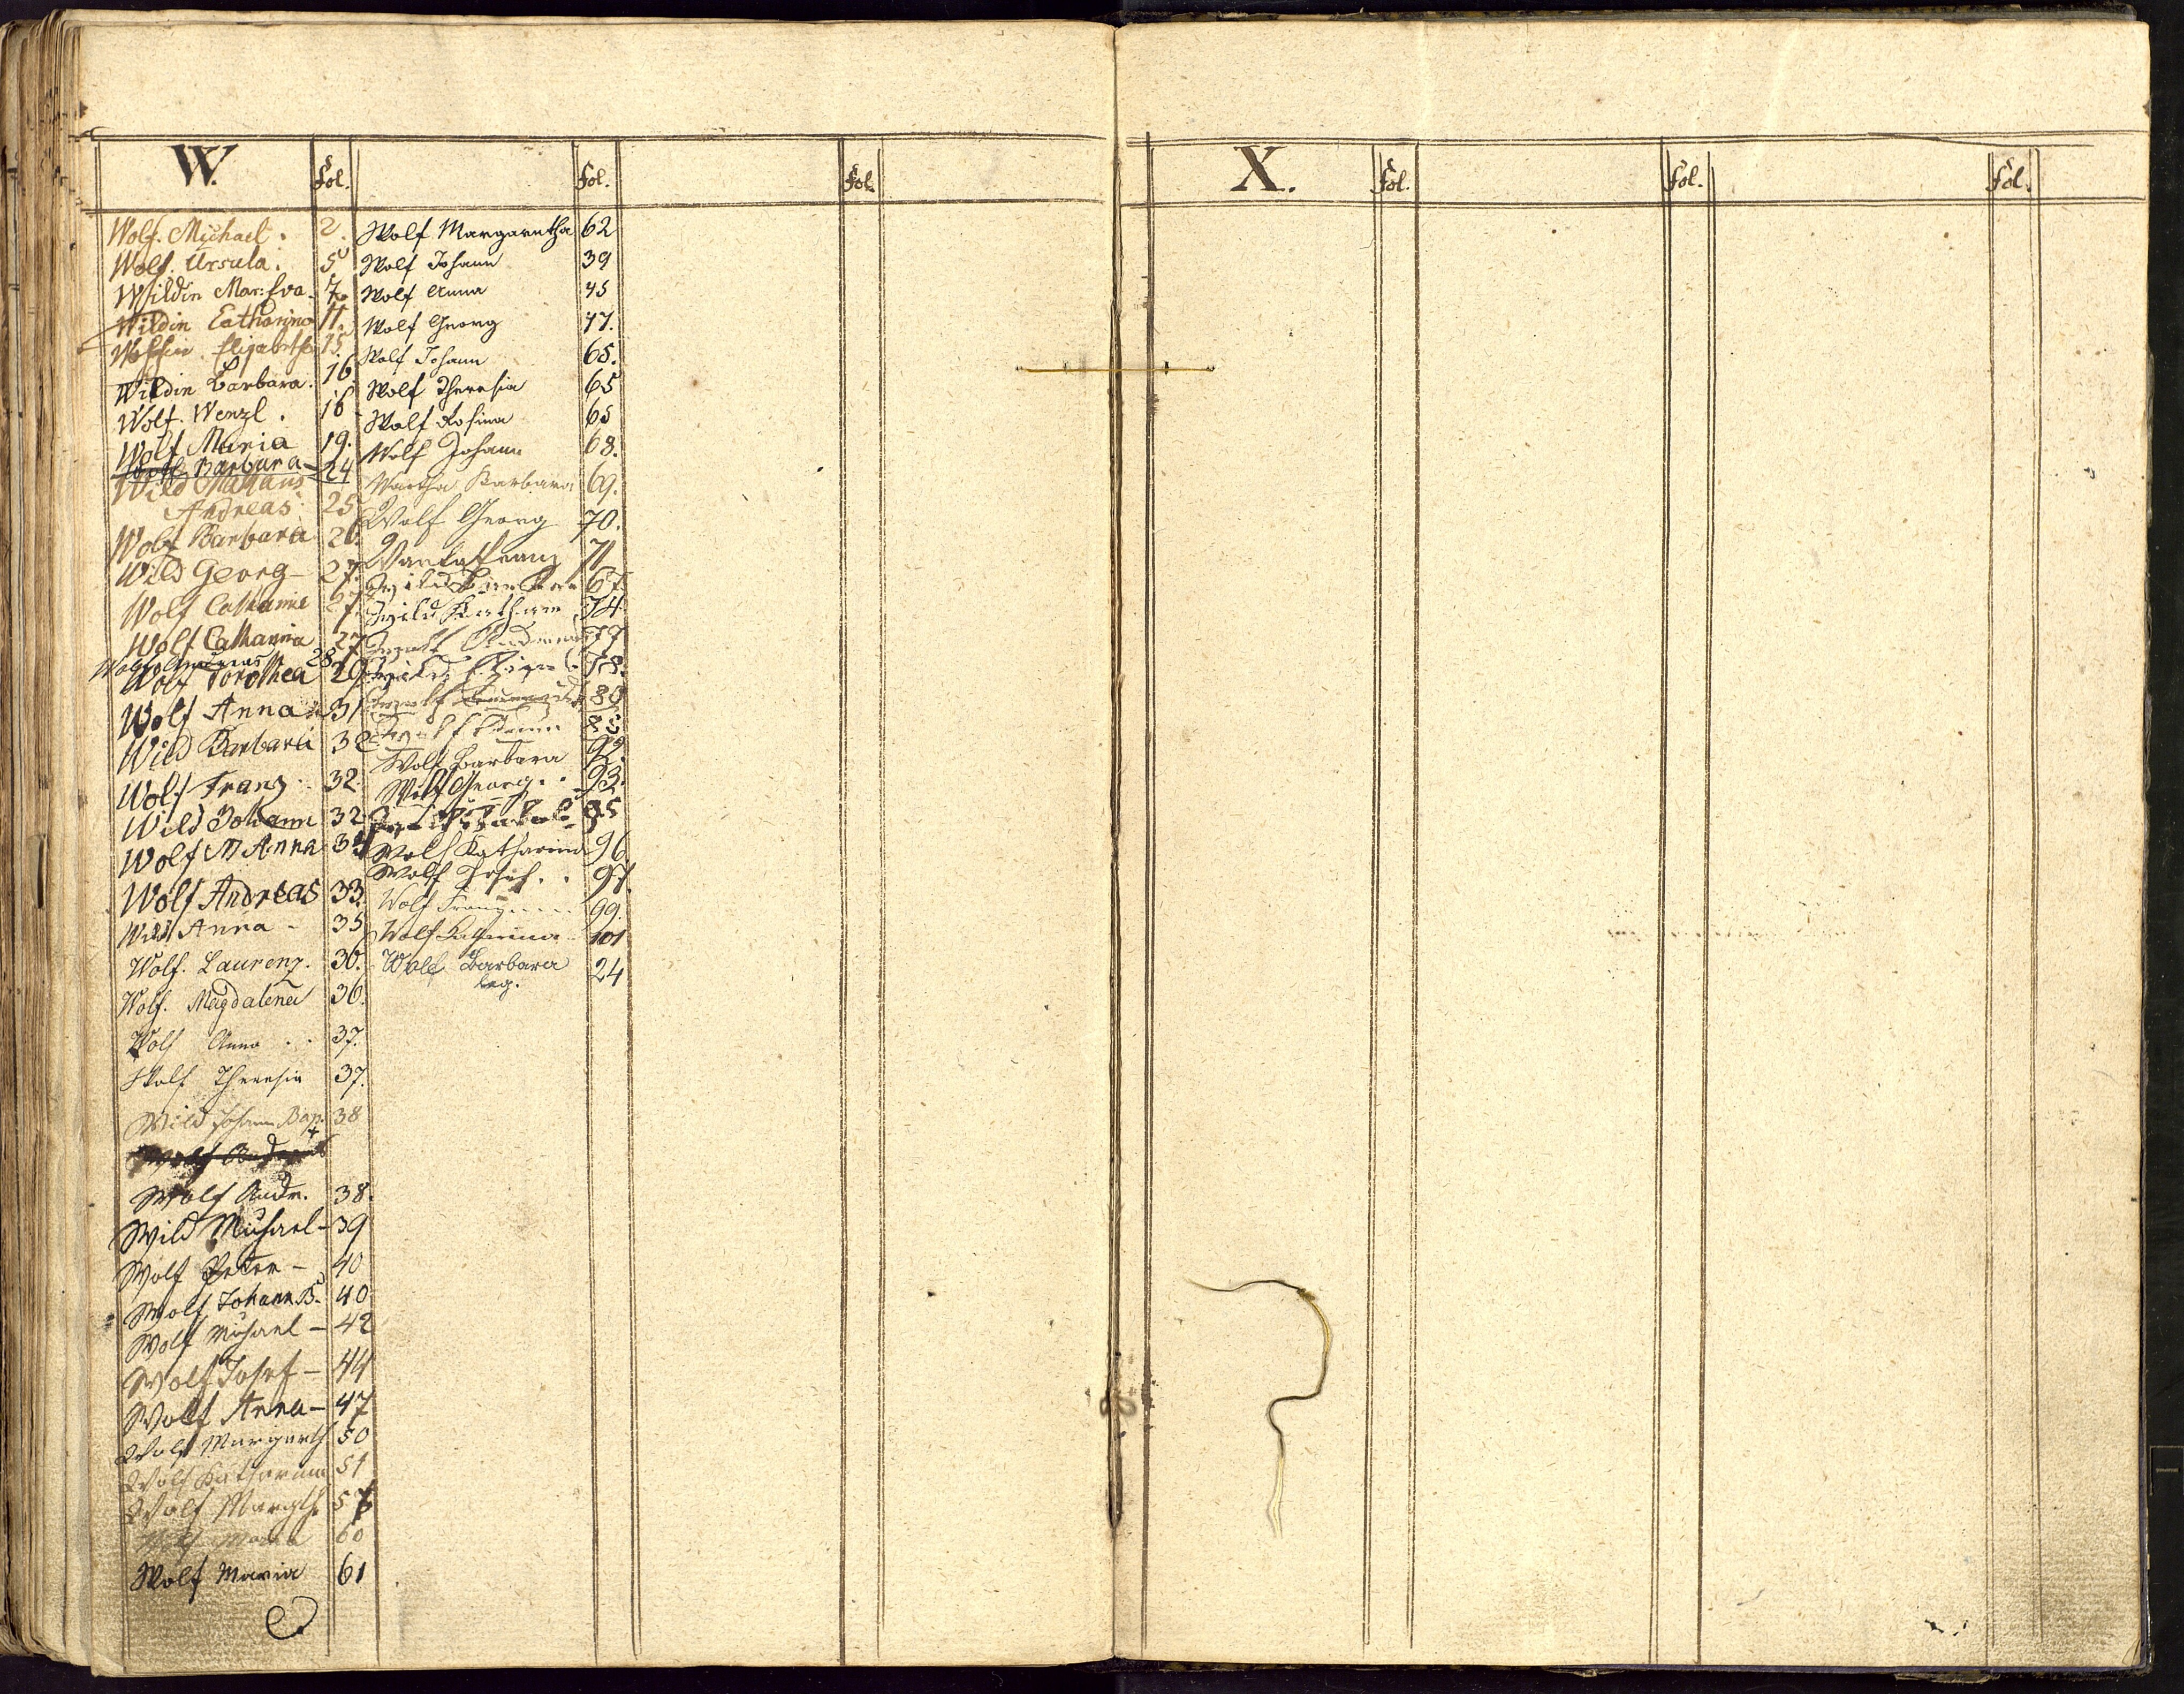 W.
fol.
fol.
fol.
Wolf. Michael. 2.
Wolf. Ursula. 5
Wildin Mar: Eva. 7.
Wildin Catharina 11.
Elisabetha 15.
Wildin Barbara. 16
Wolf. Wenzl. 18
Wolf Maria 19.
Wolf Barbara - 24
Wild Mathaus
Andreas. 25
Wolf Barbara 26.
Wild Georg - 27.
Wolf Catharina 27.
Wolf Catharina 27
Wolf Andreas 28
Wolf Dorothea 29
Wolf Anna 31
Wild Barbara 32
Wolf Franz. 32.
Wild Johann 32
Wolf M Anna 34
Wolf Andreas 33.
Wild Anna - 35
Wolf. Laurenz. 36.
Wolf. Magdalena 36.
Wolf Anna . . 37.
Wolf Theresia 37.
Wild Johann Bap. 38
Wolf Andreas
Wolf Andr. 38.
Wild Michael - 39
Wolf Peter - 40
Wolf Johann B. 40
Wolf Michael - 42
Wolf Josef - 44
Wolf Anna - 47
Wolf Margareth 50
Wolf Katharina 51
Wolf Margth. 57
Wolf Maria 60
Wolf Maria 61
Wolf Margaretha 62
Wolf Johann 39
Wolf Anna 45
Wolf Georg 47.
Wolf Johann 65.
Wolf Theresia 65
Wolf Rosina 65
Wolf Johann 68.
Barbara 69.
Wolf Georg 70.
Franz 71
Wild 67.
Wild Kathar 74.
Wolf Andreas 77
Wild 78.
Wolf 80
Wolf 88
Wolf Barbara 92.
Wolf Georg . . 93.
95
Wolf Katharina 96
Wolf Josef . . 97.
Wolf Franz . . . . 99.
Wolf Katharina . . 101
Wolf Barbara 24
leg.
X.
fol.
fol.
fol.